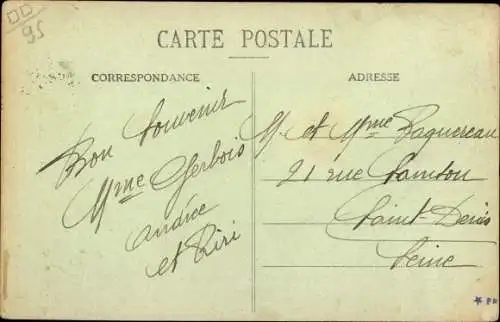 DD
95
CARTE POSTALE
CORRESPONDANCE
ADRESSE
Bon Souvenir
Mme Gerbois
Andrée
et Riri
M. et Mme Paquereau
21 rue
Saint-Denis
Seine